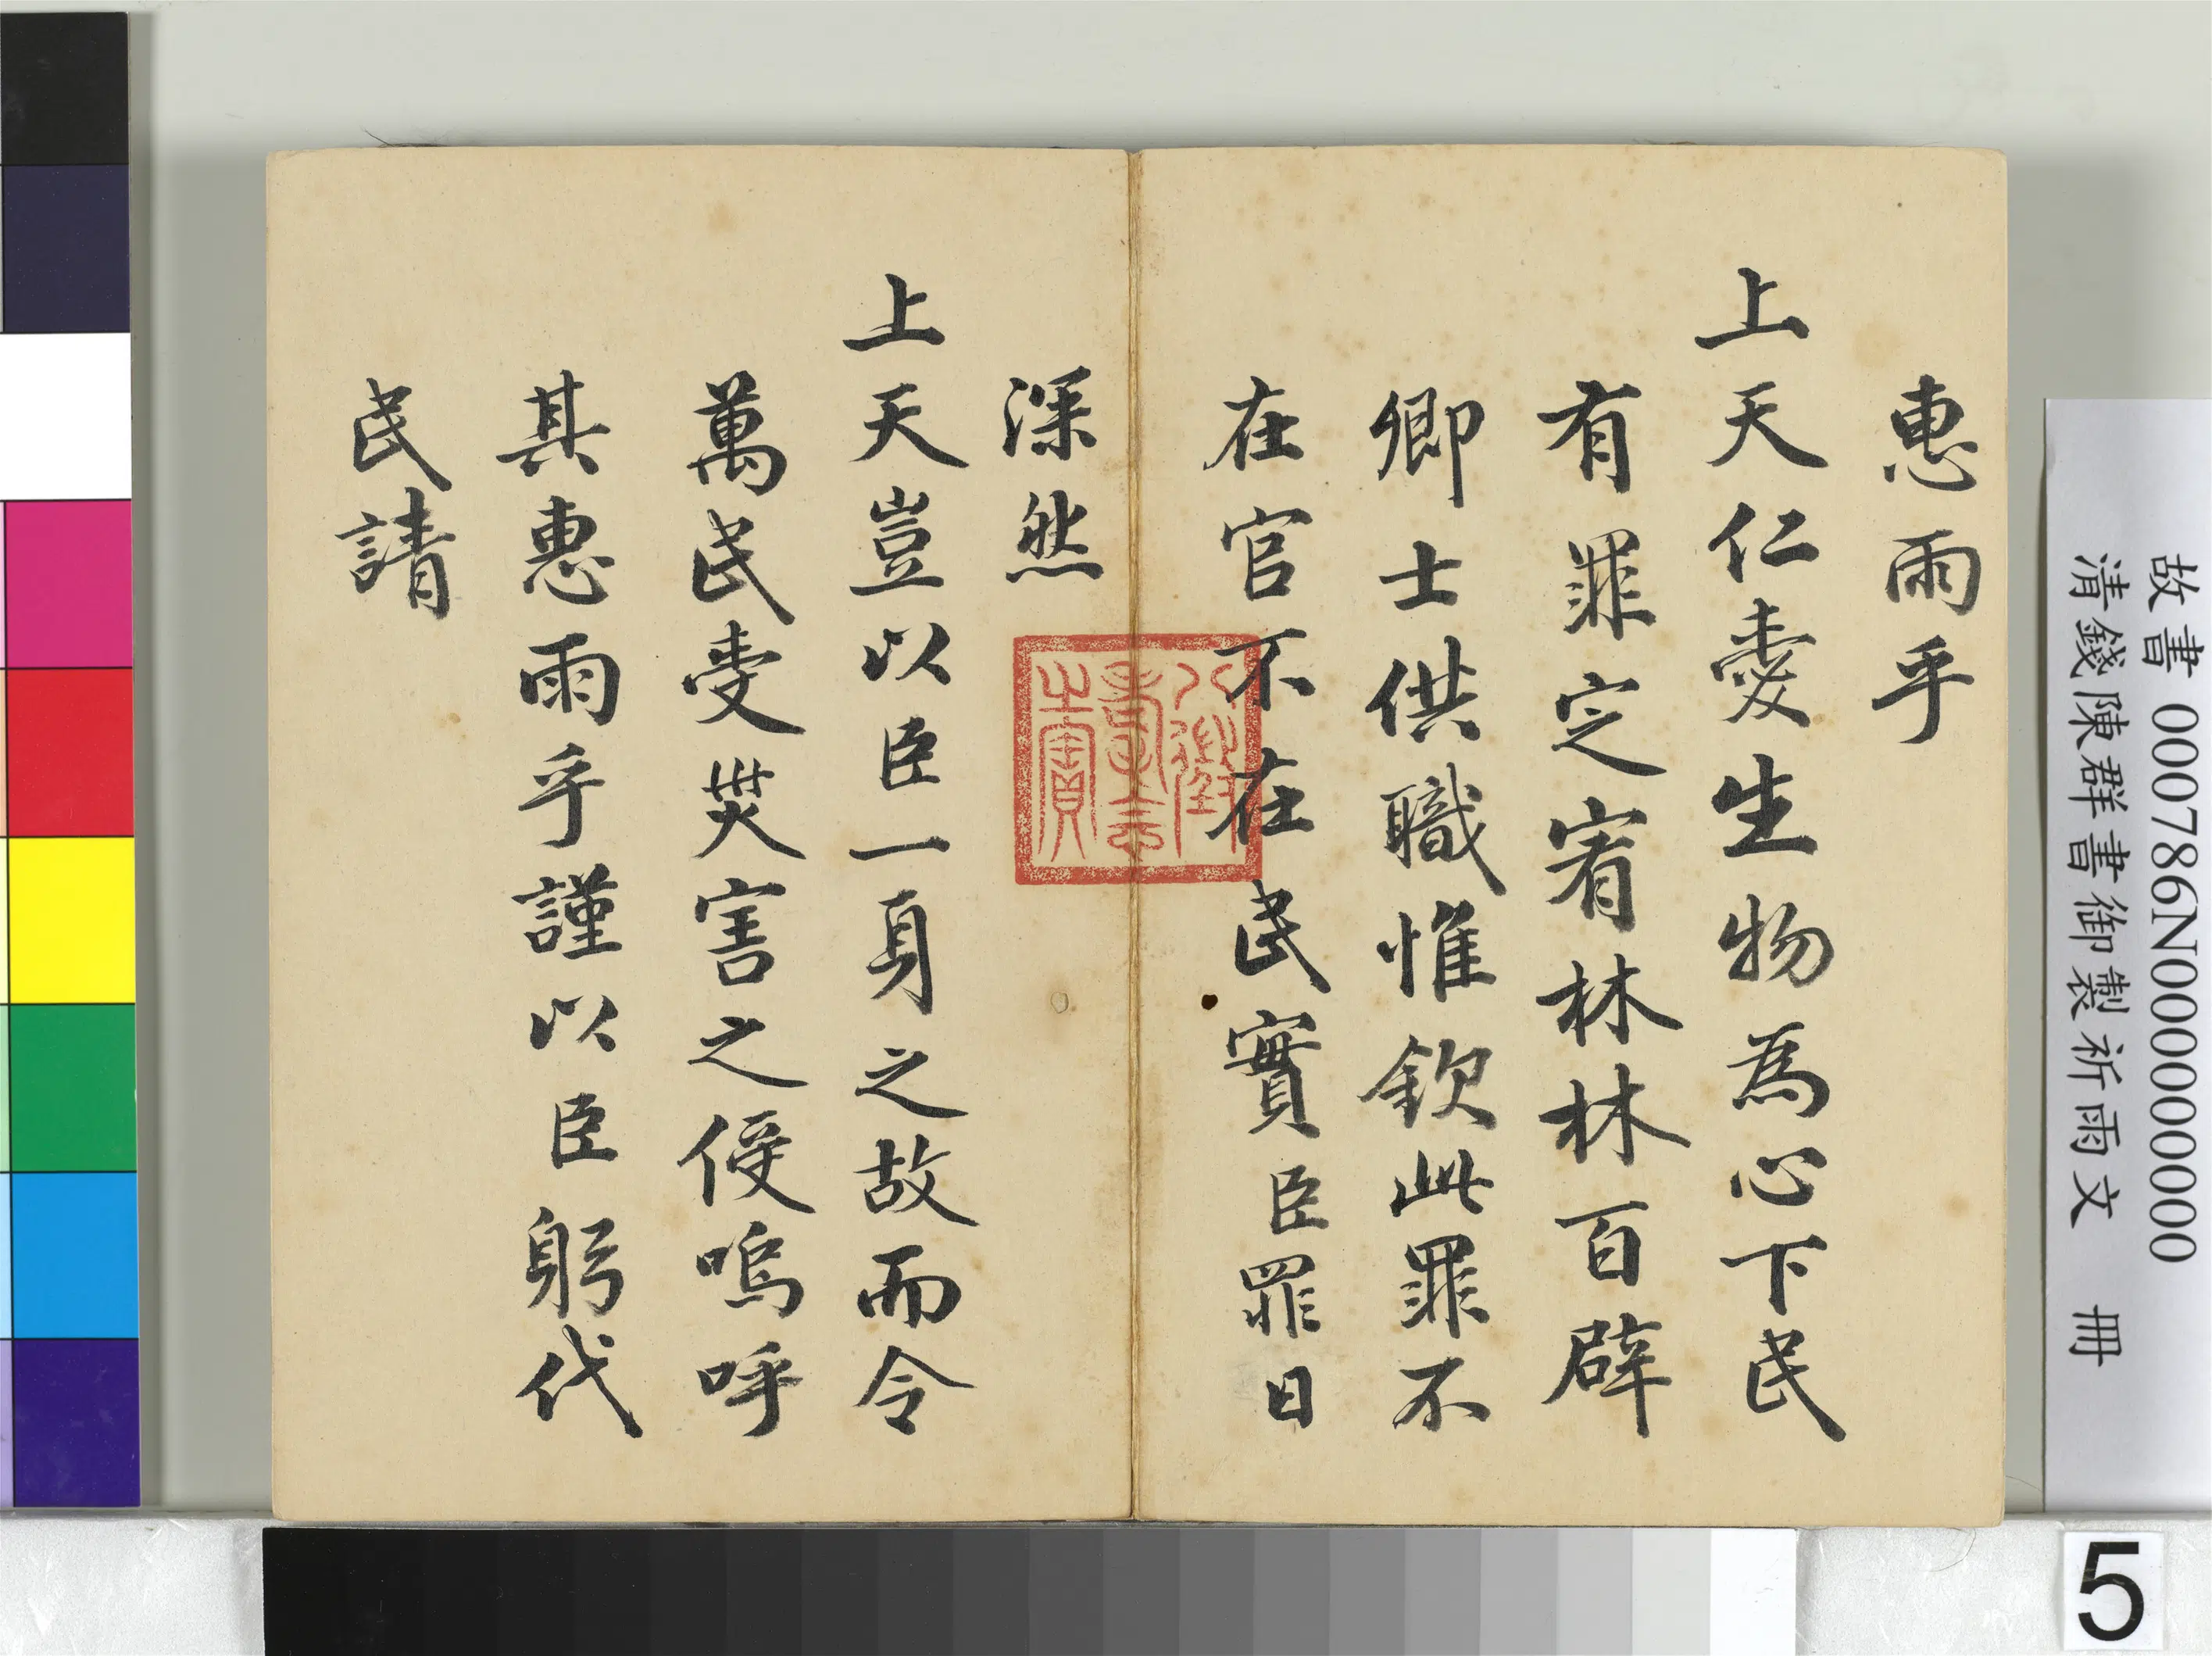 惠雨乎
上天仁愛生物為心下民
有罪定宥林林百辟
卿士供職惟欽此罪不
在官不在民實臣罪日
深然
上天豈以臣一身之故而令
萬民受災害之侵嗚呼
其惠雨乎謹以臣躬代
民請
八徵耄念之寶
故書 000786N000000000
清錢陳群書御製祈雨文 冊
5